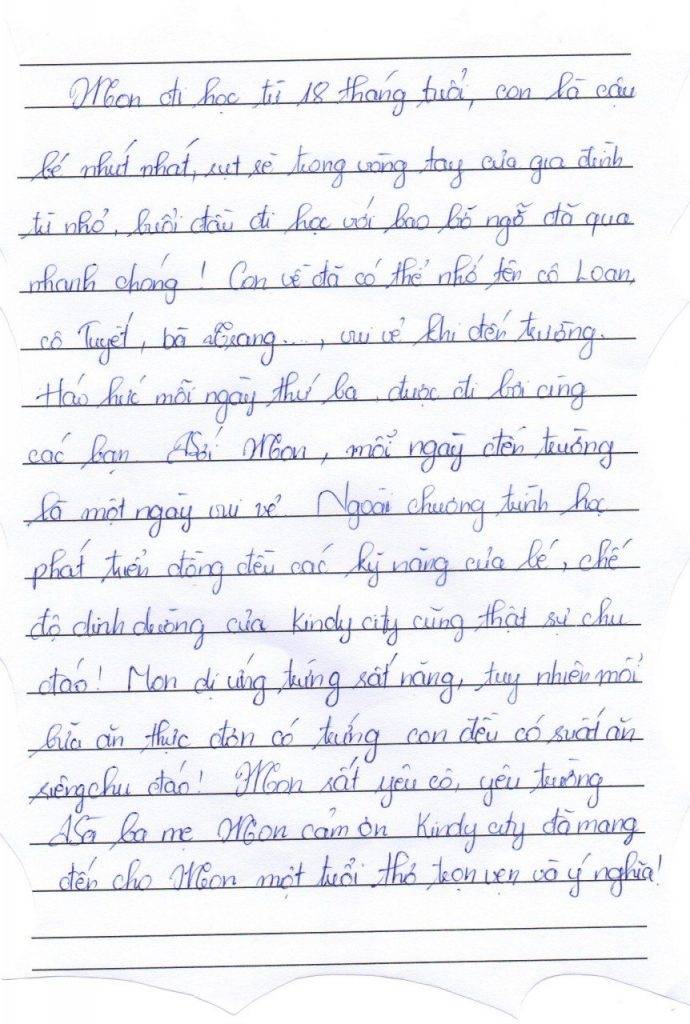 Mon đi học từ 18 tháng tuổi, con là cậu
bé nhút nhát, rụt rè trong vòng tay của gia đình
từ nhỏ, buổi đầu đi học với bao bỡ ngỡ đã qua
nhanh chóng! Con về đã có thể nhớ tên cô Loan,
cô Tuyết, bà Trang..., vui vẻ khi đến trường.
Háo hức mỗi ngày thứ ba được đi bơi cùng
các bạn. Với Mon, mỗi ngày đến trường
là một ngày vui vẻ. Ngoài chương trình học
phát triển đồng đều các kỹ năng của bé, chế
độ dinh dưỡng của Kindy city cũng thật sự chu
đáo! Mon dị ứng trứng rất nặng, tuy nhiên mỗi
bữa ăn thực đơn có trứng con đều có suất ăn
riêng chu đáo! Mon rất yêu cô, yêu trường
Và ba mẹ Mon cảm ơn Kindy city đã mang
đến cho Mon một tuổi thơ trọn vẹn và ý nghĩa!